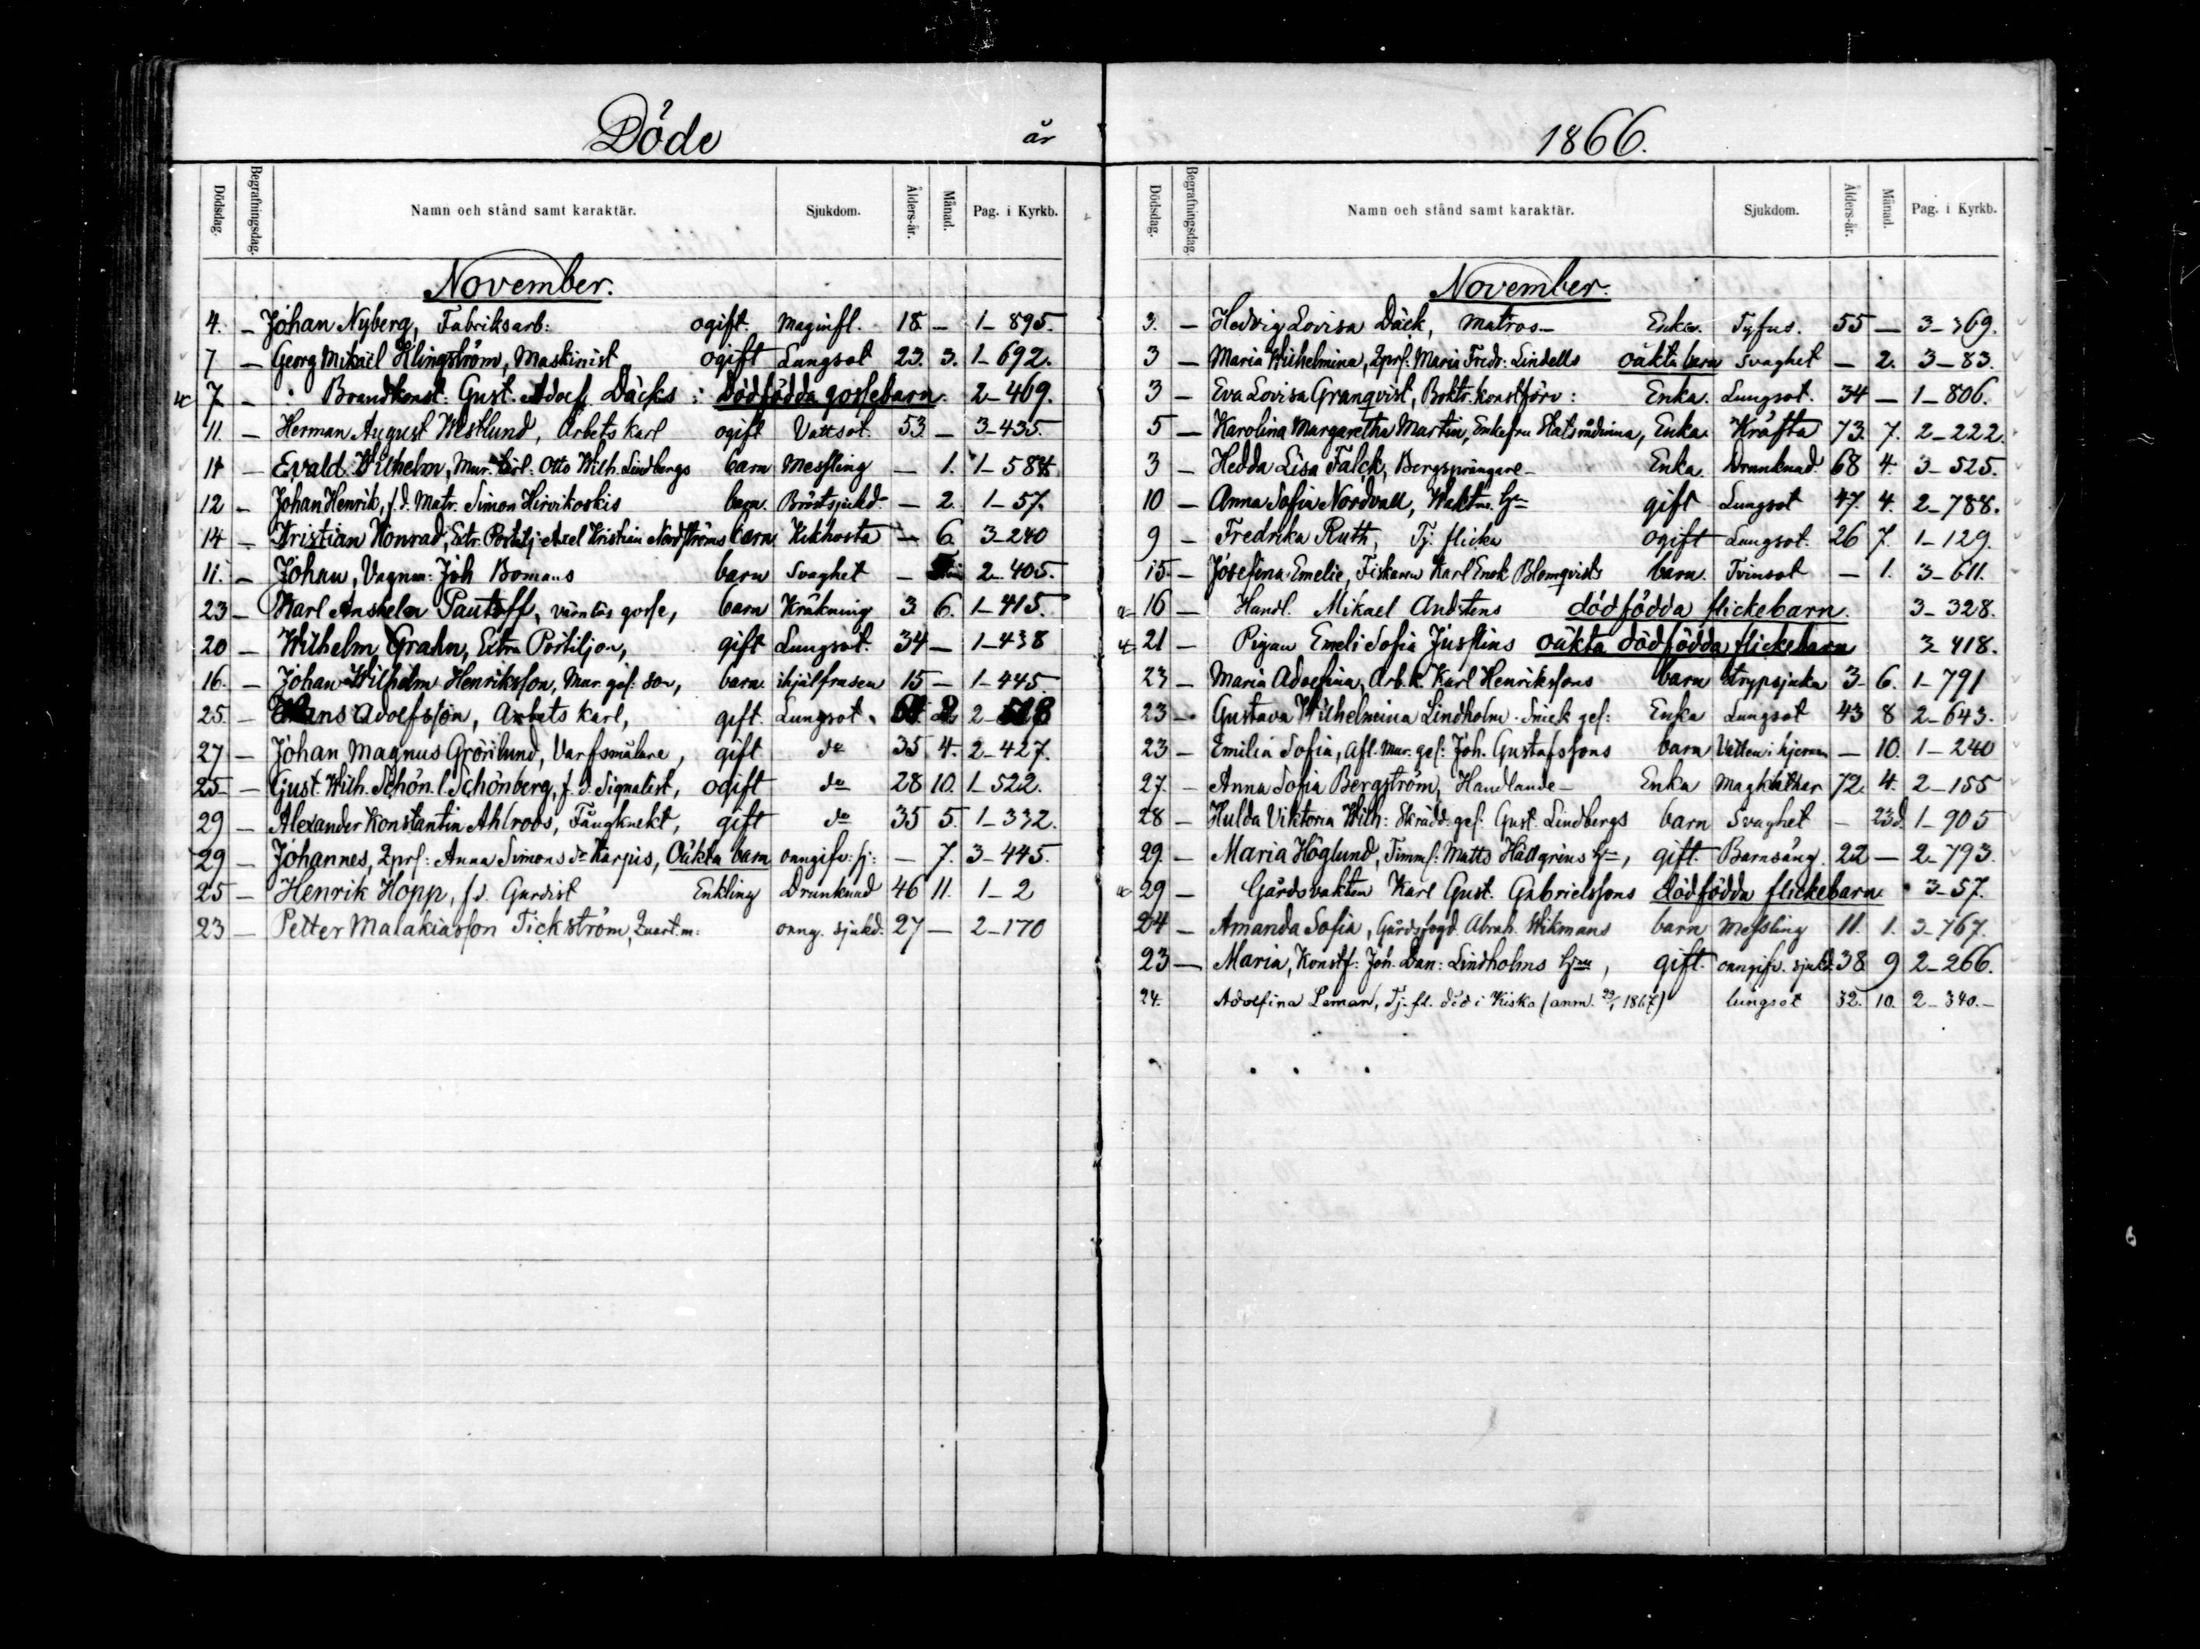 Döde år
Dödsdag. Begrafningsdag. Namn och stånd samt karaktär. Sjukdom. Ålders-år. Månad. Pag. i Kyrkb.
November.
4. — Johan Nyberg, Fabriksarb: ogift. Maginfl. 18 — 1–895.
7 — Georg Mikael Klingström, Maskinist ogift Lungsot 23. 3. 1–692.
7 — Brandkonst. Gust. Adolf Däcks : Dödfödda gossebarn. 2–409.
11. — Herman August Westlund, Arbets karl ogift Vattsot. 53 — 3–435.
11 — Evald Wilhelm, Mur. Otto Wilh. Lindbergs barn Messling — 1. 1–584.
12 — Johan Henrik, f.d. Matr. Simon Hirvikoskis barn. Bröstsjukd. — 2. 1–57.
14 — Kristian Konrad, Extr. Postilj. Axel Kristian Nordströms barn Kikhosta — 6. 3–240
11. — Johan, Vagnm: Joh Bomans barn Svaghet — 2–405.
23 — Karl Anshelm Pautoff, värnlös gosse, barn Kräkning 3 6. 1–415.
20 — Wilhelm Grahn, Extra Postiljon, gift Lungsot. 34 — 1–438
16. — Johan Wilhelm Henriksson, Mur. ges: son, barn. ihjälfrusen 15 — 1–445.
25. — Adolfsson, Arbets karl, gift. Lungsot. 2–528
27 — Johan Magnus Grönlund, Varfsmålare, gift do 35 4. 2–427.
25 — Gust. Wilh. Schön l. Schönberg, f. d. Signalist, ogift do 28 10. 1–522.
29 — Alexander Konstantin Ahlroos, Fångknekt, gift do 35 5. 1–332.
29 — Johannes, 2prs: Anna Simons dr Karjus, Oäkta barn onngifv: sj: — 7. 3–445.
25 — Henrik Hopp, f.d. Gardist Enkling Drunknad 46 11. 1–2
23 — Petter Malakiasson Tickström, Qvart.m: onng. sjukd. 27 — 2–170
1866.
Dödsdag. Begrafningsdag. Namn och stånd samt karaktär. Sjukdom. Ålders-år. Månad. Pag. i Kyrkb.
November.
3. — Hedvig Lovisa Däck, Matros– Enka. Tyfus. 55 — 3–369.
3 — Maria Wilhelmina, 2prs. Maria Fredr: Lindells oäkta barn Svaghet — 2. 3–83.
3 — Eva Lovisa Granqvist, Boktr. konstförv: Enka. Lungsot. 34 — 1–806.
5 — Karolina Margaretha Martin, Enkefru Statsrådinna, Enka. Kräfta 73. 7. 2–222.
3 — Hedda Lisa Falck, Bergsprängare– Enka. Drunknad. 68 4. 3–525.
10 — Anna Sofia Nordvall, Waktm. Hn gift Lungsot 47. 4. 2–788.
9 — Fredrika Ruth, Tj. flicka ogift Lungsot. 26 7. 1–129.
15. — Josefina Emelie, Fiskaren Karl Enok Blomqvists barn. Tvinsot — 1. 3–611.
16 — Handl. Mikael Andstens dödfödda flickebarn. 3–328.
21 — Pigan Emeli Sofia Justlins oäkta dödfödda flickebarn 3–418.
23 — Maria Adolfina, Arb.k. Karl Henrikssons barn Strypsjuka 3 6. 1–791
23 — Gustava Wilhelmina Lindholm. Snick ges: Enka Lungsot 43 8 2–643.
23 — Emilia Sofia, Afl. Mur. ges: Joh. Gustafssons barn Vatten i hjernan — 10. 1–240
27. — Anna Sofia Bergström, Handlande– Enka Magkathar 72. 4. 2–155
28 — Hulda Viktoria Wilh: Skrädd. ges: Gust. Lindbergs barn Svaghet — 23d. 1–905
29. — Maria Höglund, Timm: Matts Hällgrens Hn, gift. Barnsäng. 22 — 2–793.
29 — Gårdsvakten Karl Gust. Gabrielssons dödfödda flickebarn. 3–57.
24 — Amanda Sofia, Gårdsfogd. Abrah. Wikmans barn Messling 11. 1. 3–767.
23 — Maria, Konstf: Joh. Dan: Lindholms Hru, gift. onngifv. sjukd. 38 9 2–266.
24. Adolfina Leman, Tj. fl. död i Kisko (anm. 1867) lungsot 32. 10. 2–340.–